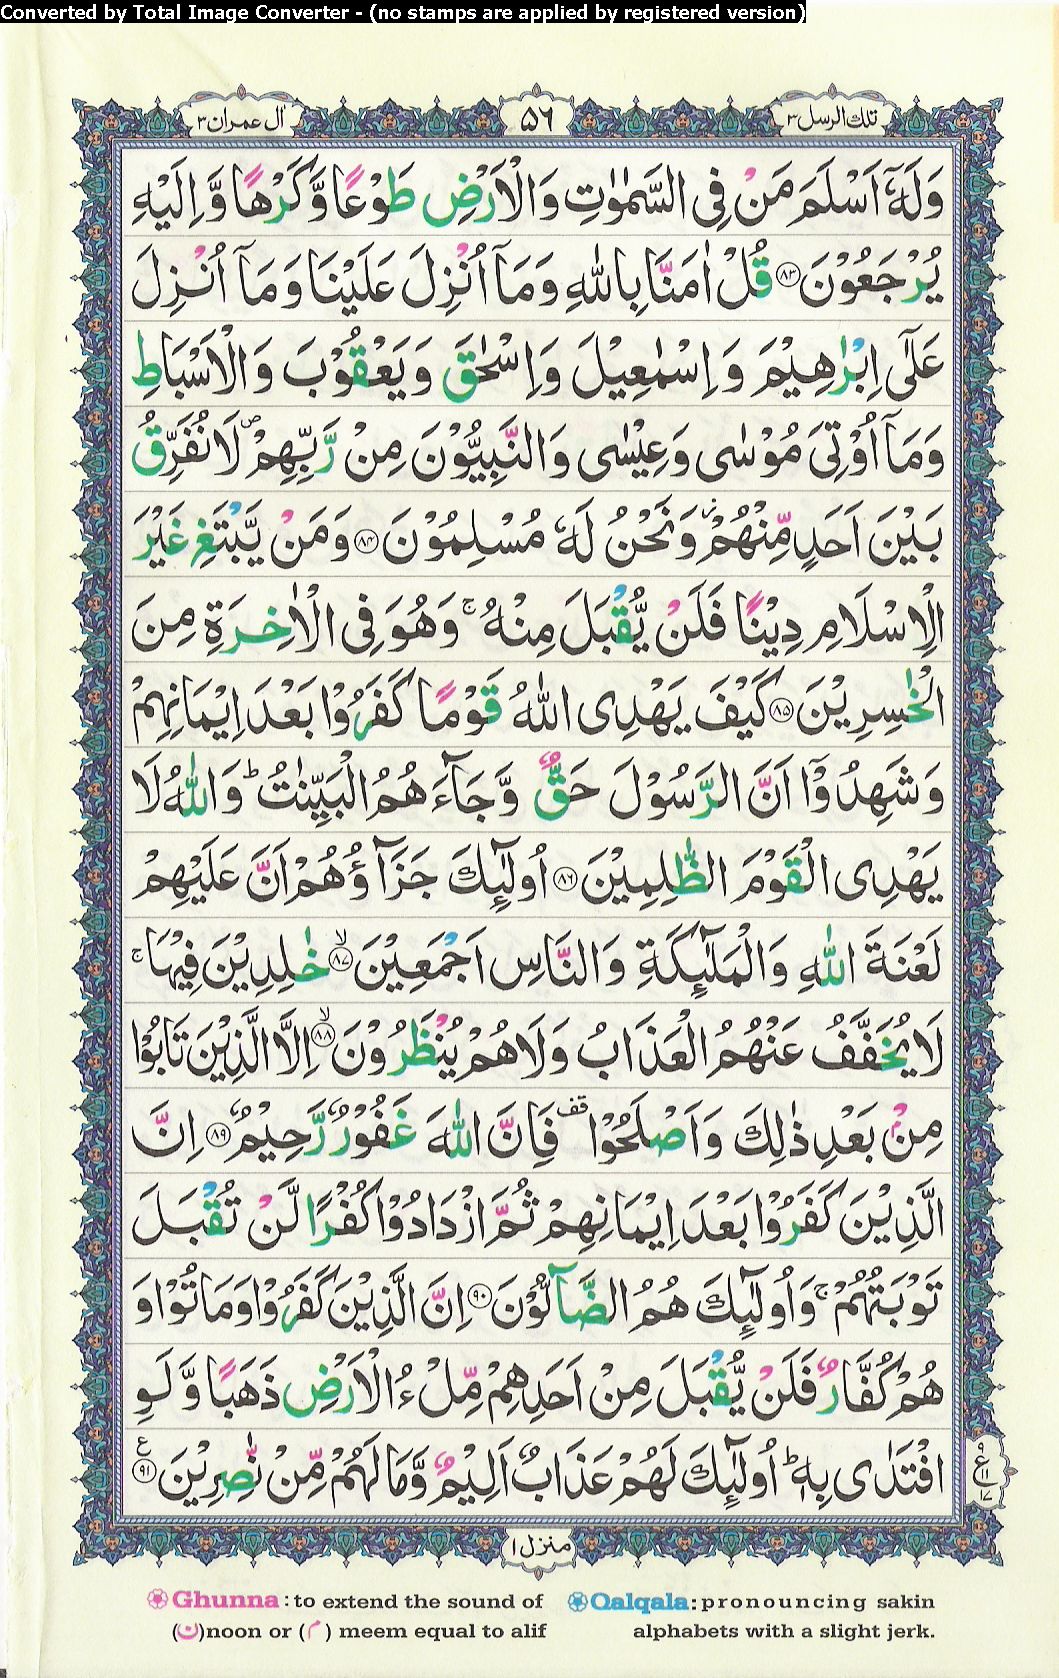 Converted by Total Image Converter - (no stamps are applied by registered version)
تلك الرسل ٣ ٥٦ اٰل عمران ٣
وَلَهٗۤ اَسْلَمَ مَنْ فِی السَّمٰوٰتِ وَالْاَرْضِ طَوْعًا وَّكَرْهًا وَّاِلَیْهِ
یُرْجَعُوْنَ ﴿۸۳﴾ قُلْ اٰمَنَّا بِاللّٰهِ وَمَاۤ اُنْزِلَ عَلَیْنَا وَمَاۤ اُنْزِلَ
عَلٰۤی اِبْرٰهِیْمَ وَاِسْمٰعِیْلَ وَاِسْحٰقَ وَیَعْقُوْبَ وَالْاَسْبَاطِ
وَمَاۤ اُوْتِیَ مُوْسٰی وَعِیْسٰی وَالنَّبِیُّوْنَ مِنْ رَّبِّهِمْ ۪ لَا نُفَرِّقُ
بَیْنَ اَحَدٍ مِّنْهُمْ ؗ وَنَحْنُ لَهٗ مُسْلِمُوْنَ ﴿۸۴﴾ وَمَنْ یَّبْتَغِ غَیْرَ
الْاِسْلَامِ دِیْنًا فَلَنْ یُّقْبَلَ مِنْهُ ۚ وَهُوَ فِی الْاٰخِرَةِ مِنَ
الْخٰسِرِیْنَ ﴿۸۵﴾ كَیْفَ یَهْدِی اللّٰهُ قَوْمًا كَفَرُوْا بَعْدَ اِیْمَانِهِمْ
وَشَهِدُوْۤا اَنَّ الرَّسُوْلَ حَقٌّ وَّجَآءَهُمُ الْبَیِّنٰتُ ؕ وَاللّٰهُ لَا
یَهْدِی الْقَوْمَ الظّٰلِمِیْنَ ﴿۸۶﴾ اُولٰٓئِكَ جَزَآؤُهُمْ اَنَّ عَلَیْهِمْ
لَعْنَةَ اللّٰهِ وَالْمَلٰٓئِكَةِ وَالنَّاسِ اَجْمَعِیْنَ ﴿۸۷﴾ۙ خٰلِدِیْنَ فِیْهَا ۚ
لَا یُخَفَّفُ عَنْهُمُ الْعَذَابُ وَلَا هُمْ یُنْظَرُوْنَ ﴿۸۸﴾ۙ اِلَّا الَّذِیْنَ تَابُوْا
مِنْۢ بَعْدِ ذٰلِكَ وَاَصْلَحُوْا قف فَاِنَّ اللّٰهَ غَفُوْرٌ رَّحِیْمٌ ﴿۸۹﴾ اِنَّ
الَّذِیْنَ كَفَرُوْا بَعْدَ اِیْمَانِهِمْ ثُمَّ ازْدَادُوْا كُفْرًا لَّنْ تُقْبَلَ
تَوْبَتُهُمْ ۚ وَاُولٰٓئِكَ هُمُ الضَّآلُّوْنَ ﴿۹۰﴾ اِنَّ الَّذِیْنَ كَفَرُوْا وَمَاتُوْا وَ
هُمْ كُفَّارٌ فَلَنْ یُّقْبَلَ مِنْ اَحَدِهِمْ مِّلْءُ الْاَرْضِ ذَهَبًا وَّلَوِ
افْتَدٰی بِهٖ ؕ اُولٰٓئِكَ لَهُمْ عَذَابٌ اَلِیْمٌ وَّمَا لَهُمْ مِّنْ نّٰصِرِیْنَ ﴿۹۱﴾ ع
۹ ع ۱۱ ۱۷
منزل ۱
Ghunna: to extend the sound of (ن)noon or (م) meem equal to alif
Qalqala: pronouncing sakin alphabets with a slight jerk.